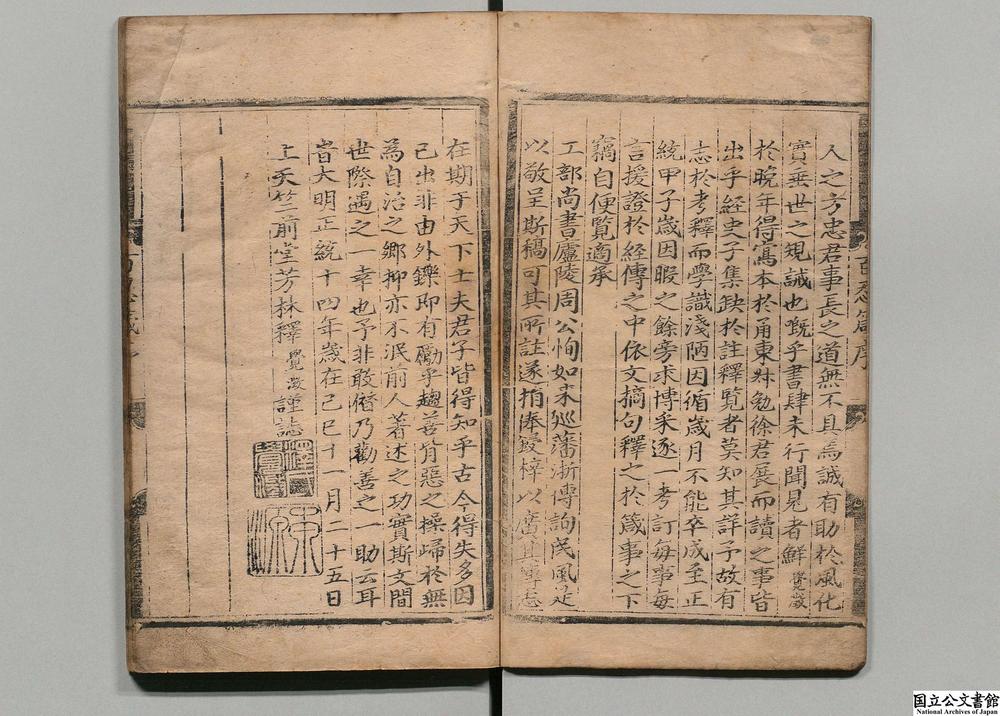 人之方忠君事長之道無不具焉誠有助於風化
實垂世之規誡也慨乎書肆未行聞見者鮮覺澂
於晚年得寫本於甬東姝勉徐君展而讀之事皆
出乎經史子集缺於註釋覽者莫知其詳予故有
志於考釋而學識淺陋因循歲月不能卒成至正
統甲子歲因暇之餘旁求博采逐一考訂每事每
言援證於經傳之中依文摘句釋之於箴事之下
竊自便覽適承
工部尚書廬陵周公恂如来巡藩浙傳詢民風是
以敬呈斯稿可其所註遂捐俸鋟梓以廣其傳志
在期于天下士夫君子皆得知乎古今得失多因
己出非由外鑠即有勵乎趨善背惡之操歸於無
為自治之鄉抑亦不泯前人著述之功實斯文間
世際遇之一幸也予非敢僭乃勸善之一助云耳
旹大明正統十四年歲在己巳十一月二十五日
上天竺前堂芳林釋覺澂謹誌
百忍箴序
国立公文書館
National Archives of Japan